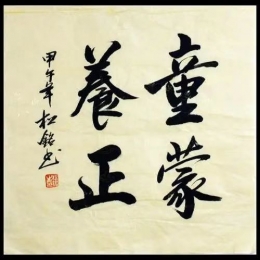 童蒙
養正
甲午年松銘书